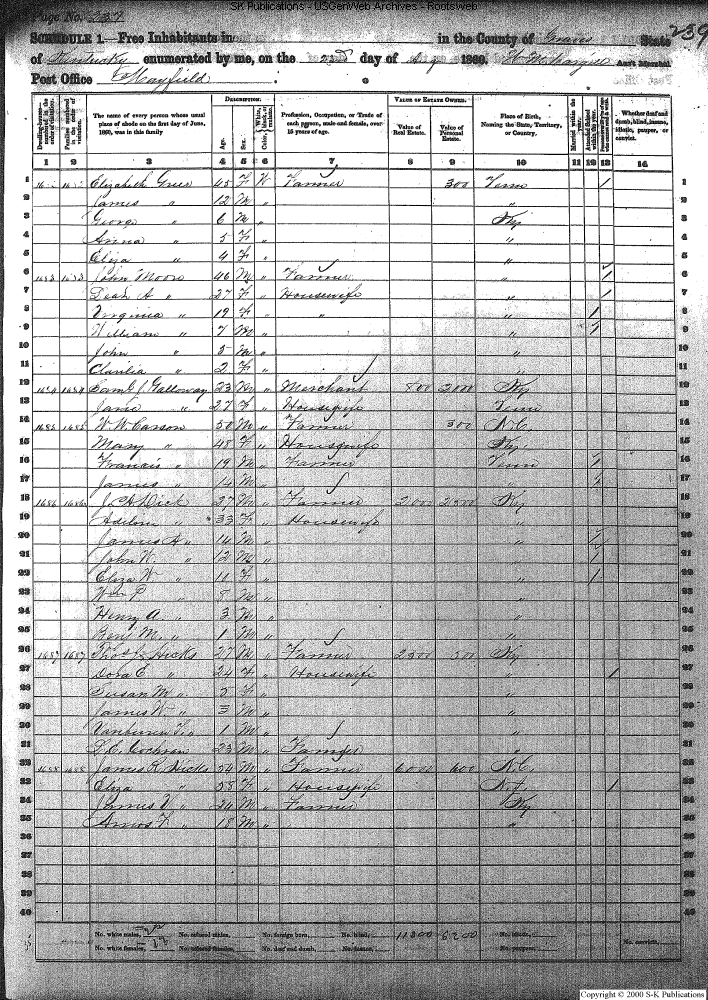 SK Publications - USGenWeb Archives - Rootsweb
Page No. 237
239
SCHEDULE 1.—Free Inhabitants in in the County of Graves State
of Kentucky enumerated by me, on the day of 1860. Ass't Marshal
Post Office Mayfield
Dwelling-houses—numbered in the order of visitation.
Families numbered in the order of visitation.
The name of every person whose usual place of abode on the first day of June, 1860, was in this family
DESCRIPTION.
Age.
Sex.
Color,
Profession, Occupation, or Trade of each person, male and female, over 15 years of age.
VALUE OF ESTATE OWNED.
Value of Real Estate.
Value of Personal Estate.
Place of Birth, Naming the State, Territory, or Country.
Married within the year.
Attended School within the year.
Whether deaf and dumb, blind, insane, idiotic, pauper, or convict.
1 2 3 4 5 6 7 8 9 10 11 12 13 14
1 Elizabeth 45 F W Farmer 300 Tenn / 1
2 James " 12 M " " 2
3 George " 6 M " Ky 3
4 " 5 F " " 4
5 Eliza " 4 F " " 5
6 John Moore 46 M " Farmer " / 6
7 " 27 F " Housewife " / 7
8 Virginia " 19 F " " " / 8
9 William " 7 M " " / 9
10 John " 5 M " " 10
11 " 2 F " " 11
12 1684 1684 Saml J. Galloway 23 M " Merchant 800 2000 Ky 12
13 Jane " 27 F " Housewife Tenn 13
14 1685 1685 W. W. Carson 50 M " Farmer 300 N.C. 14
15 Mary " 48 F " Housewife Ky 15
16 Francis " 19 M " Farmer Tenn / 16
17 James " 14 M " " / 17
18 1686 1686 Dick 27 M " Farmer 2000 2500 Ky 18
19 " 33 F " Housewife " 19
20 James H " 14 M " " / 20
21 John W. " 12 M " " / 21
22 Eliza W " 10 F " " / 22
23 Wm P " 8 M " " 23
24 Henry A. " 3 M " " 24
25 Benj M. " 1 M " " 25
26 1687 1687 Thos J. Hicks 27 M " Farmer 2500 500 Ky 26
27 Dora E " 24 F " Housewife " / 27
28 Susan M " 5 F " " 28
29 James W. " 3 M " " 29
30 Vanburen " 1 M " " 30
31 Cochran 23 M " Farmer " 31
32 1688 1688 James R. Hicks 54 M " Farmer 6000 600 N.C. 32
33 Eliza " 58 F " Housewife / 33
34 James " 24 M " Farmer Ky 34
35 Amos F. " 18 M " " 35
36 36
37 37
38 38
39 39
40 40
No. white males, No. colored males, No. foreign born, No. blind, 11800 6200 No. idiotic,
No. white females, 13 No. colored females, No. deaf and dumb, No. insane, No. paupers, No. convicts,
Copyright © 2000 S-K Publications